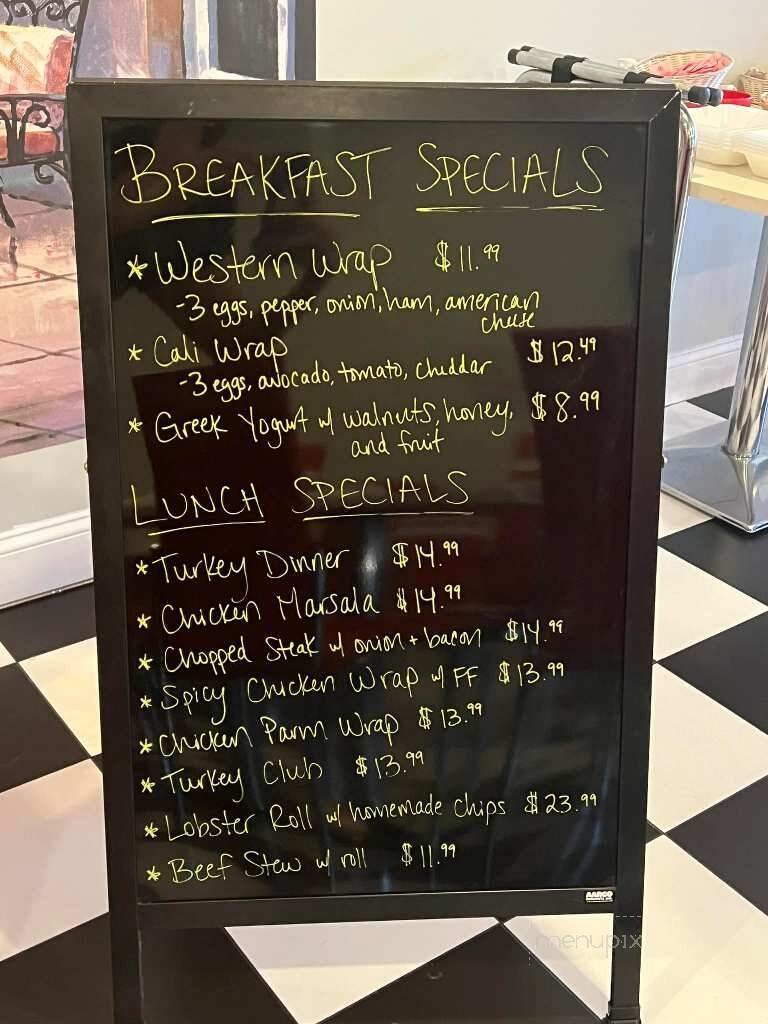 BREAKFAST SPECIALS
* Western Wrap $11.99
-3 eggs, pepper, onion, ham, american
cheese
* Cali Wrap $12.49
-3 eggs, avocado, tomato, cheddar
* Greek Yogurt w/ walnuts, honey, $8.99
and fruit
LUNCH SPECIALS
* Turkey Dinner $14.99
* Chicken Marsala $14.99
* Chopped Steak w/ onion + bacon $14.99
* Spicy Chicken Wrap w/ FF $13.99
* Chicken Parm Wrap $13.99
* Turkey Club $13.99
* Lobster Roll w/ homemade chips $23.99
* Beef Stew w/ roll $11.99
AARCO
menupix